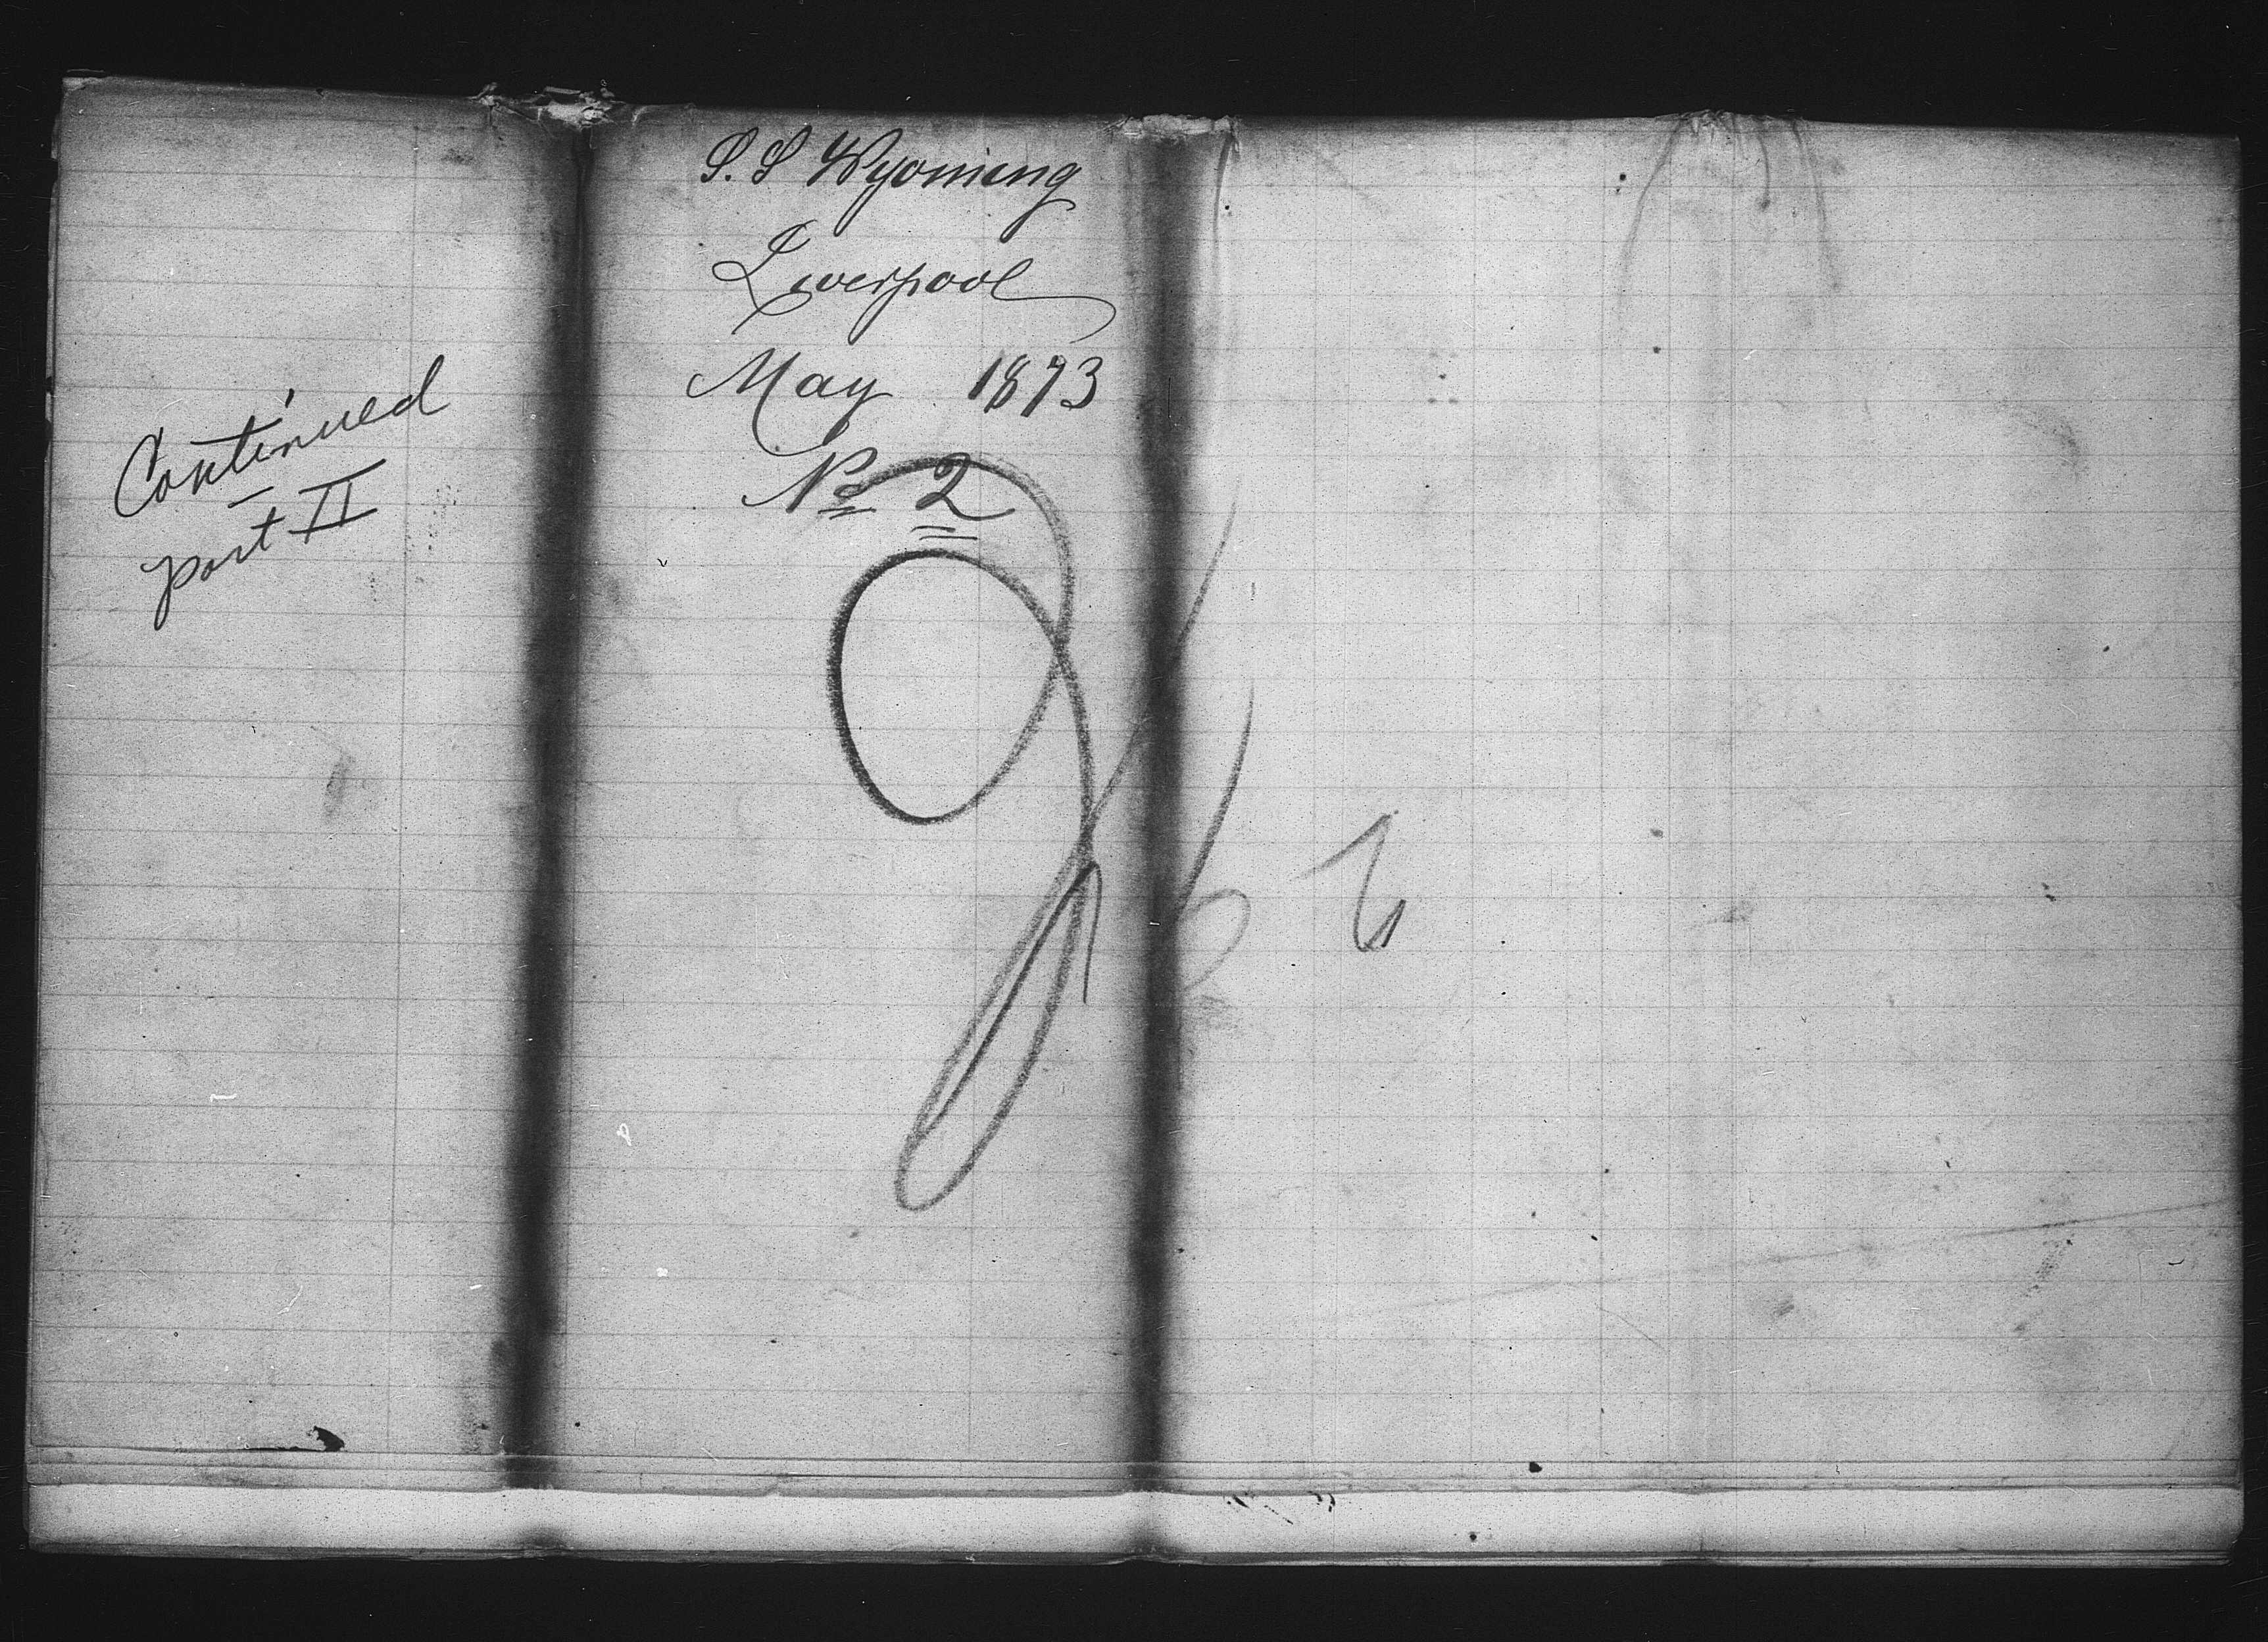 S.S Wyoming
Liverpool
May 1873
No 2
Continued
part II